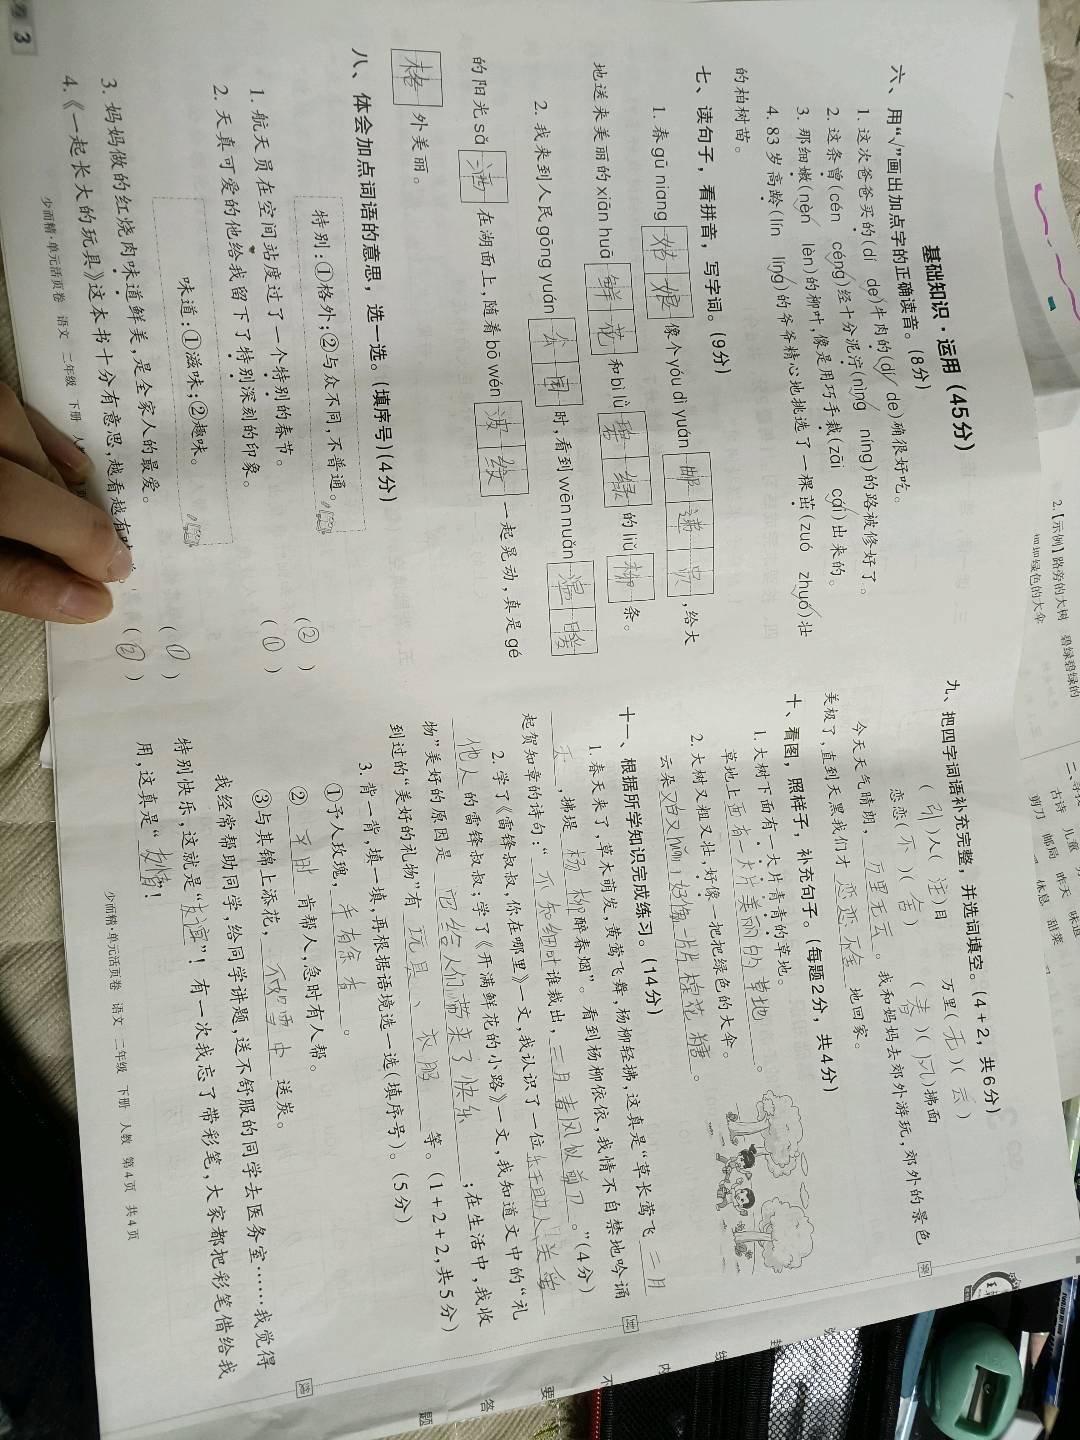 基础知识·运用(45分)
六、用“√”画出加点字的正确读音。(8分)
1. 这次爸爸买的(dí de)牛肉的(dí de)确很好吃。
2. 这条曾(cén céng)经十分泥泞(nìng níng)的路被修好了。
3. 那细嫩(nèn lèn)的柳叶,像是用巧手裁(zāi cái)出来的。
4. 83岁高龄(lín líng)的爷爷精心地挑选了一棵茁(zuó zhuó)壮
的柏树苗。
七、读句子,看拼音,写字词。(9分)
1. 春gū niang 姑娘 像个yóu dì yuán 邮递员,给大
地送来美丽的xiān huā 鲜花 和bì lǜ 碧绿 的liǔ 柳 条。
2. 我来到人民gōng yuán 公园 时,看到wēn nuǎn 温暖
的阳光sǎ 洒 在湖面上,随着bō wén 波纹 一起晃动,真是gé
格 外美丽。
八、体会加点词语的意思,选一选。(填序号)(4分)
特别:①格外;②与众不同,不普通。
1. 航天员在空间站度过了一个特别的春节。 (②)
2. 天真可爱的他给我留下了特别深刻的印象。 (①)
味道:①滋味;②趣味。
3. 妈妈做的红烧肉味道鲜美,是全家人的最爱。 (①)
4.《一起长大的玩具》这本书十分有意思,越看越有 (②)
少而精·单元活页卷 语文 二年级 下册 人
九、把四字词语补充完整,并选词填空。(4+2,共6分)
(引)人(注)目 万里(无)(云)
恋恋(不)(舍) (春)(风)拂面
今天天气晴朗,万里无云。我和妈妈去郊外游玩,郊外的景色
美极了,直到天黑我们才 恋恋不舍 地回家。
十、看图,照样子,补充句子。(每题2分,共4分)
1. 大树下面有一大片青青的草地。
草地上面有一大片美丽的草地。
2. 大树又粗又壮,好像一把把绿色的大伞。
云朵又白又,好像一片棉花糖。
十一、根据所学知识完成练习。(14分)
1. 春天来了,草木萌发,黄莺飞舞,杨柳轻拂,这真是“草长莺飞 二月
天,拂堤 杨柳 醉春烟”。看到杨柳依依,我情不自禁地吟诵
起贺知章的诗句:“不知细叶谁裁出,二月春风似剪刀。”(4分)
2. 学了《雷锋叔叔,你在哪里》一文,我认识了一位乐于助人、关爱
他人 的雷锋叔叔;学了《开满鲜花的小路》一文,我知道文中的“礼
物”美好的原因是 它给人们带来了快乐;在生活中,我收
到过的“美好的礼物”有 玩具、衣服 等。(1+2+2,共5分)
3. 背一背,填一填,再根据语境选一选(填序号)。(5分)
①予人玫瑰,手有余香。
② 平时 肯帮人,急时有人帮。
③与其锦上添花,不如雪中 送炭。
我经常帮助同学,给同学讲题,送不舒服的同学去医务室……我觉得
特别快乐,这就是“”!有一次我忘了带彩笔,大家都把彩笔借给我
用,这真是“”!
少而精·单元活页卷 语文 二年级 下册 人教 第4页 共4页
2.【示例】路旁的大树 碧绿碧绿的
古诗 儿童
剪刀 邮局 昨天 味道
休息 甜菜
密
封
线
内
不
要
答
题
3